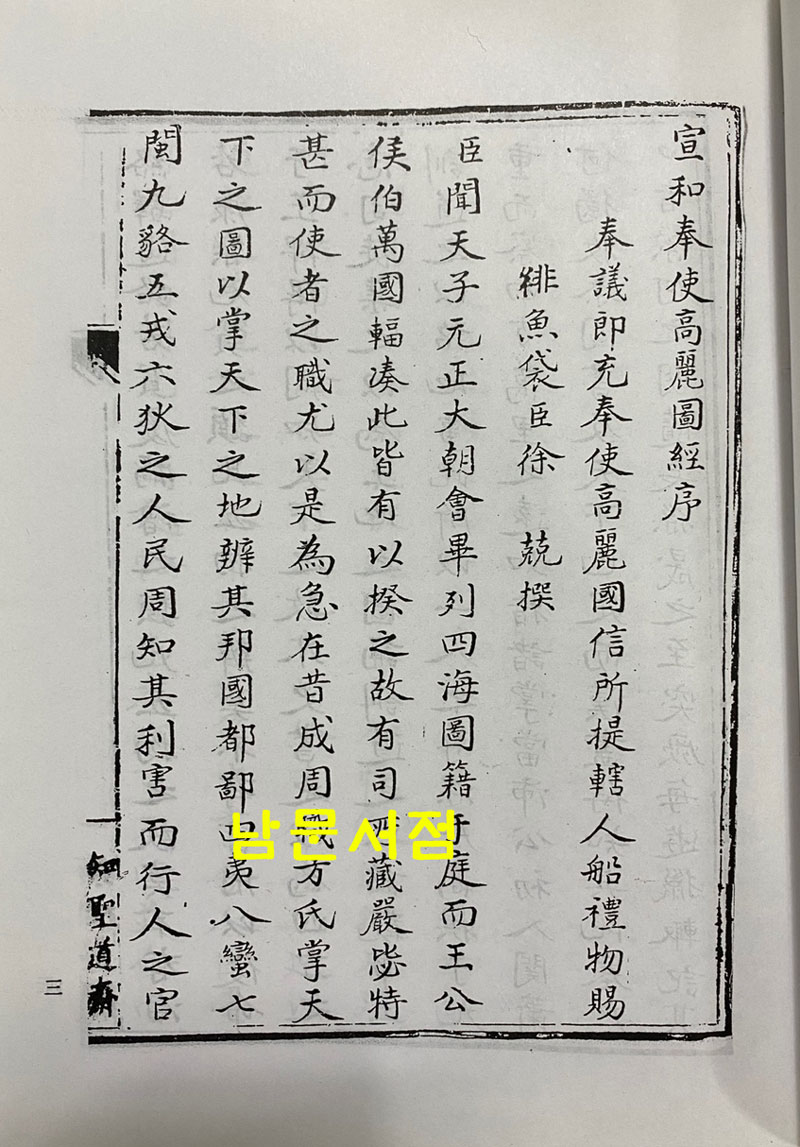 宣和奉使高麗圖經序
奉議郎充奉使高麗國信所提轄人船禮物賜
緋魚袋臣徐 兢撰
臣聞天子元正大朝會畢列四海圖籍于庭而王公
侯伯萬國輻湊此皆有以揆之故有司所藏嚴毖特
甚而使者之職尤以是為急在昔成周職方氏掌天
下之圖以掌天下之地辨其邦國都鄙四夷八蠻七
閩九貉五戎六狄之人民周知其利害而行人之官
知聖道齋
三
남문서점